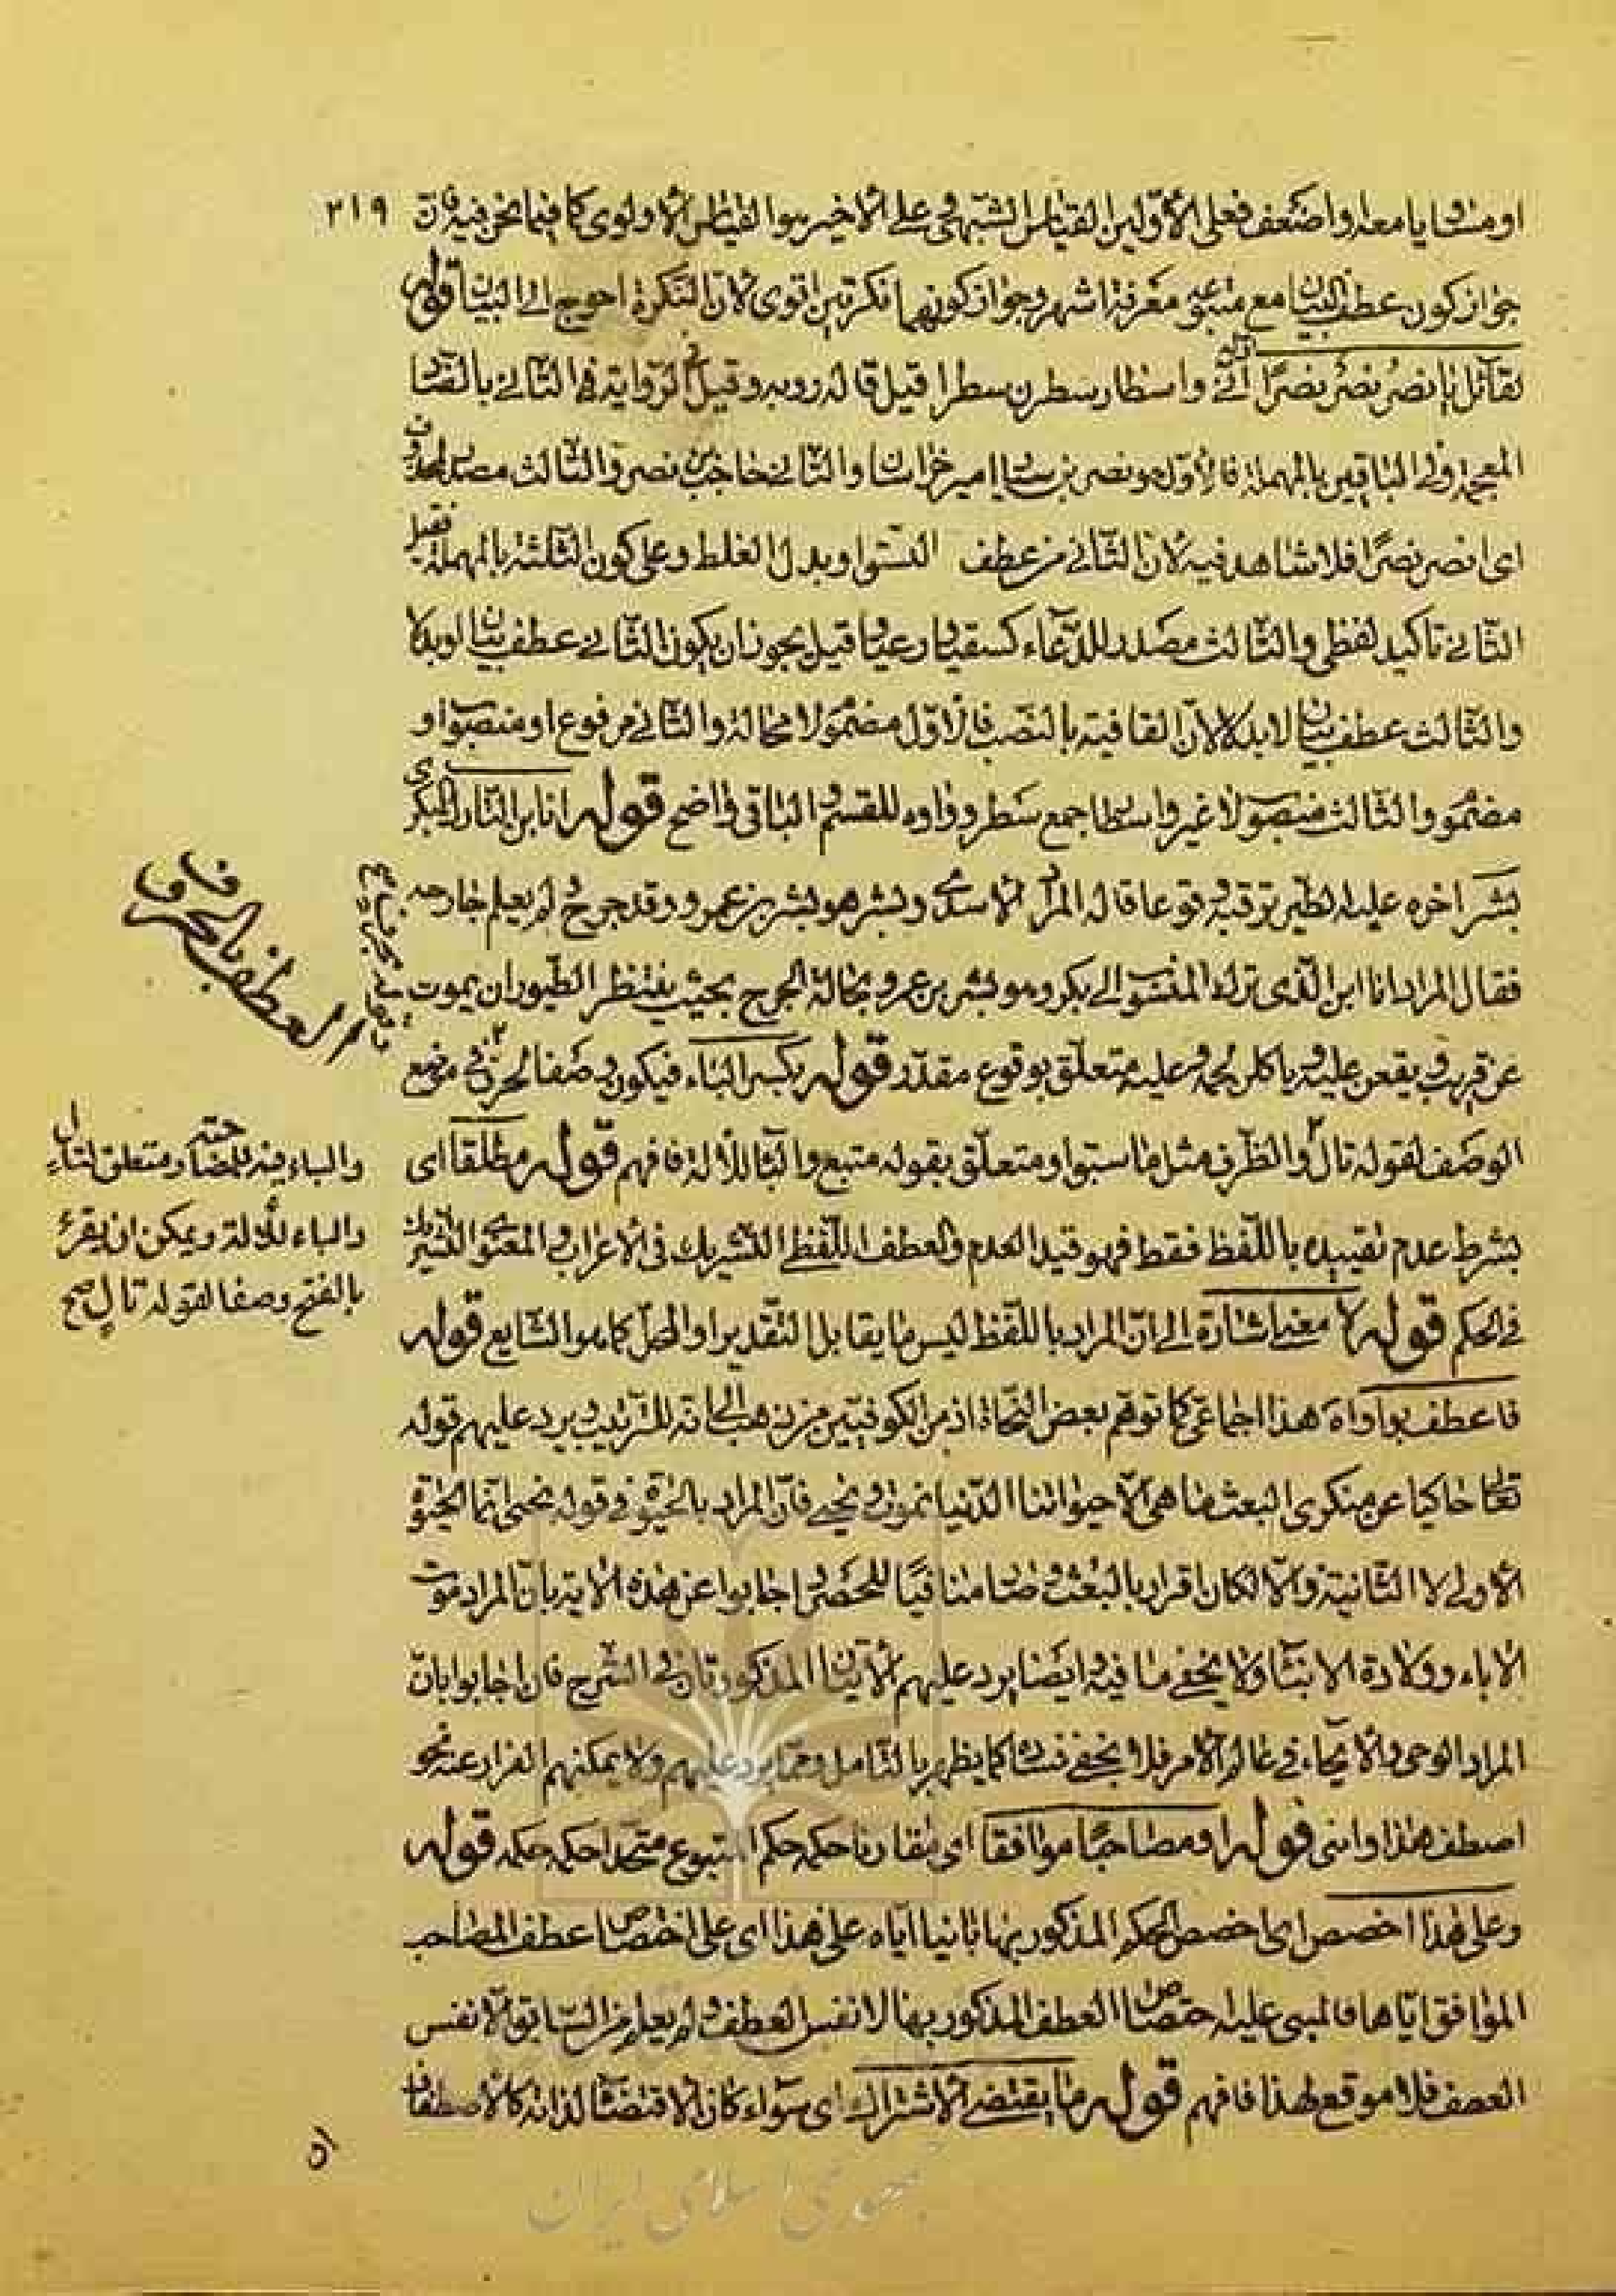 او مساويا معه او اضعف فعلى الاولين القياس الشبهى و على الاخير هو القياس الاولوى كما فيما نحن فيه فان ٢١٩
جواز كون عطف البيان مع متبوعه معرفة اشهر و جواز كونهما نكرتين اقوى لان النكرة احوج الى البيان قوله
لقائل يا نصر نصر نصرا اوله انى و اسطار سطرن سطرا قيل قاله روبه و قيل الرواية فى الثانى بالضاد
المعجمة و فى الباقين بالمهملة فالاول هو نصر بن سيار امير خراسان و الثانى حاجب نصر و الثالث مصدر لمحذوف
اى انصر نصرا فلا شاهد فيه لان الثانى من عطف النسق او بدل الغلط و على كون الثلثة بالمهملة فقيل
الثانى تاكيد لفظى و الثالث مصدر للدعاء كسقيا و رعيا و قيل يجوز ان يكون الثانى عطف بيان او بدلا
و الثالث عطف بيان لا بدلا لان القافية بالنصب فالاول مضموم لا محالة و الثانى مرفوع او منصوب او
مضموم و الثالث منصوب لا غير و اسطار جمع سطر و واوه للقسم و الباقى واضح قوله انا ابن التارك البكرى
بشر اخره عليه الطير ترقبه وقوعا قاله المرار الاسدى و بشر هو بشر بن عمرو و قد جرح و لم يعلم جارحه
فقال المرار انا ابن الذى ترك المنسوب الى بكر و هو بشر بن عمرو بحالة الجرح بحيث ينتظر الطيور ان يموت
عن قريب و يقعن عليه و ياكلن لحمه و عليه متعلق بوقوع مقدر قوله بكسر الباء فيكون وصفا لحرف فى موضع
الوصف لقوله تال و الظرف مثل ما استوا و متعلق بقوله متبع و الباء للالة فافهم قوله مطلقا اى
بشرط عدم تقييده باللفظ فقط فهو قيد العدم و العطف اللفظى التشريك فى الاعراب و المعنوى التشريك
فى الحكم قوله لا معنى اشارة الى ان المراد باللفظ ليس ما يقابل التقدير او المحل كما هو الشايع قوله
فاعطف بواو اه هذا اجماعى كما توهم بعض النحاة اذ من الكوفيين من ذهب الى انه للترتيب و يرد عليهم قوله
تعالى حاكيا عن منكرى البعث ما هى الا حيواتنا الدنيا نموت و نحيى فان المراد بالحيوة فى قوله نحيى انما الحيوة
الاولى لا الثانية و الا لكان اقرارا بالبعث و صار منافيا للحصر و اجابوا عن هذه الاية بان المراد موت
الاباء و ولادة الابناء و لا يخفى ما فيه و ايضا يرد عليهم الايتان المذكورتان فى الشرح فان اجابوا بان
المراد الوحى و الايحاء فى عالم الامر فلا يخفى فساده كما يظهر بالتامل و مما يرد عليهم و لا يمكنهم الفرار عنه نحو
اصطف هذا و ابنى قوله او مصاحبا موافقا اى مقارنا حكمه حكم المتبوع متحدا حكمه حكمه قوله
و على هذا اخصص اى خصص الحكم المذكور بها بانيا اياه على هذا اى على اختصاص عطف المصاحب
الموافق اياها فالمبنى عليه اختصاص العطف المذكور بها لا نفس العطف و لم يعلم من السابق الا نفس
العطف فلا موقع لهذا فافهم قوله ما يقتضى الاشتراك اى سواء كان الاقتضاء لذاته كالاصطفاف
العطف بالحروف
و الباء فيه للمصاحبة و متعلق لتال
و الباء للالة و يمكن ان يقرء
بالفتح وصفا لقوله تال صح
جمهوری اسلامی ایران